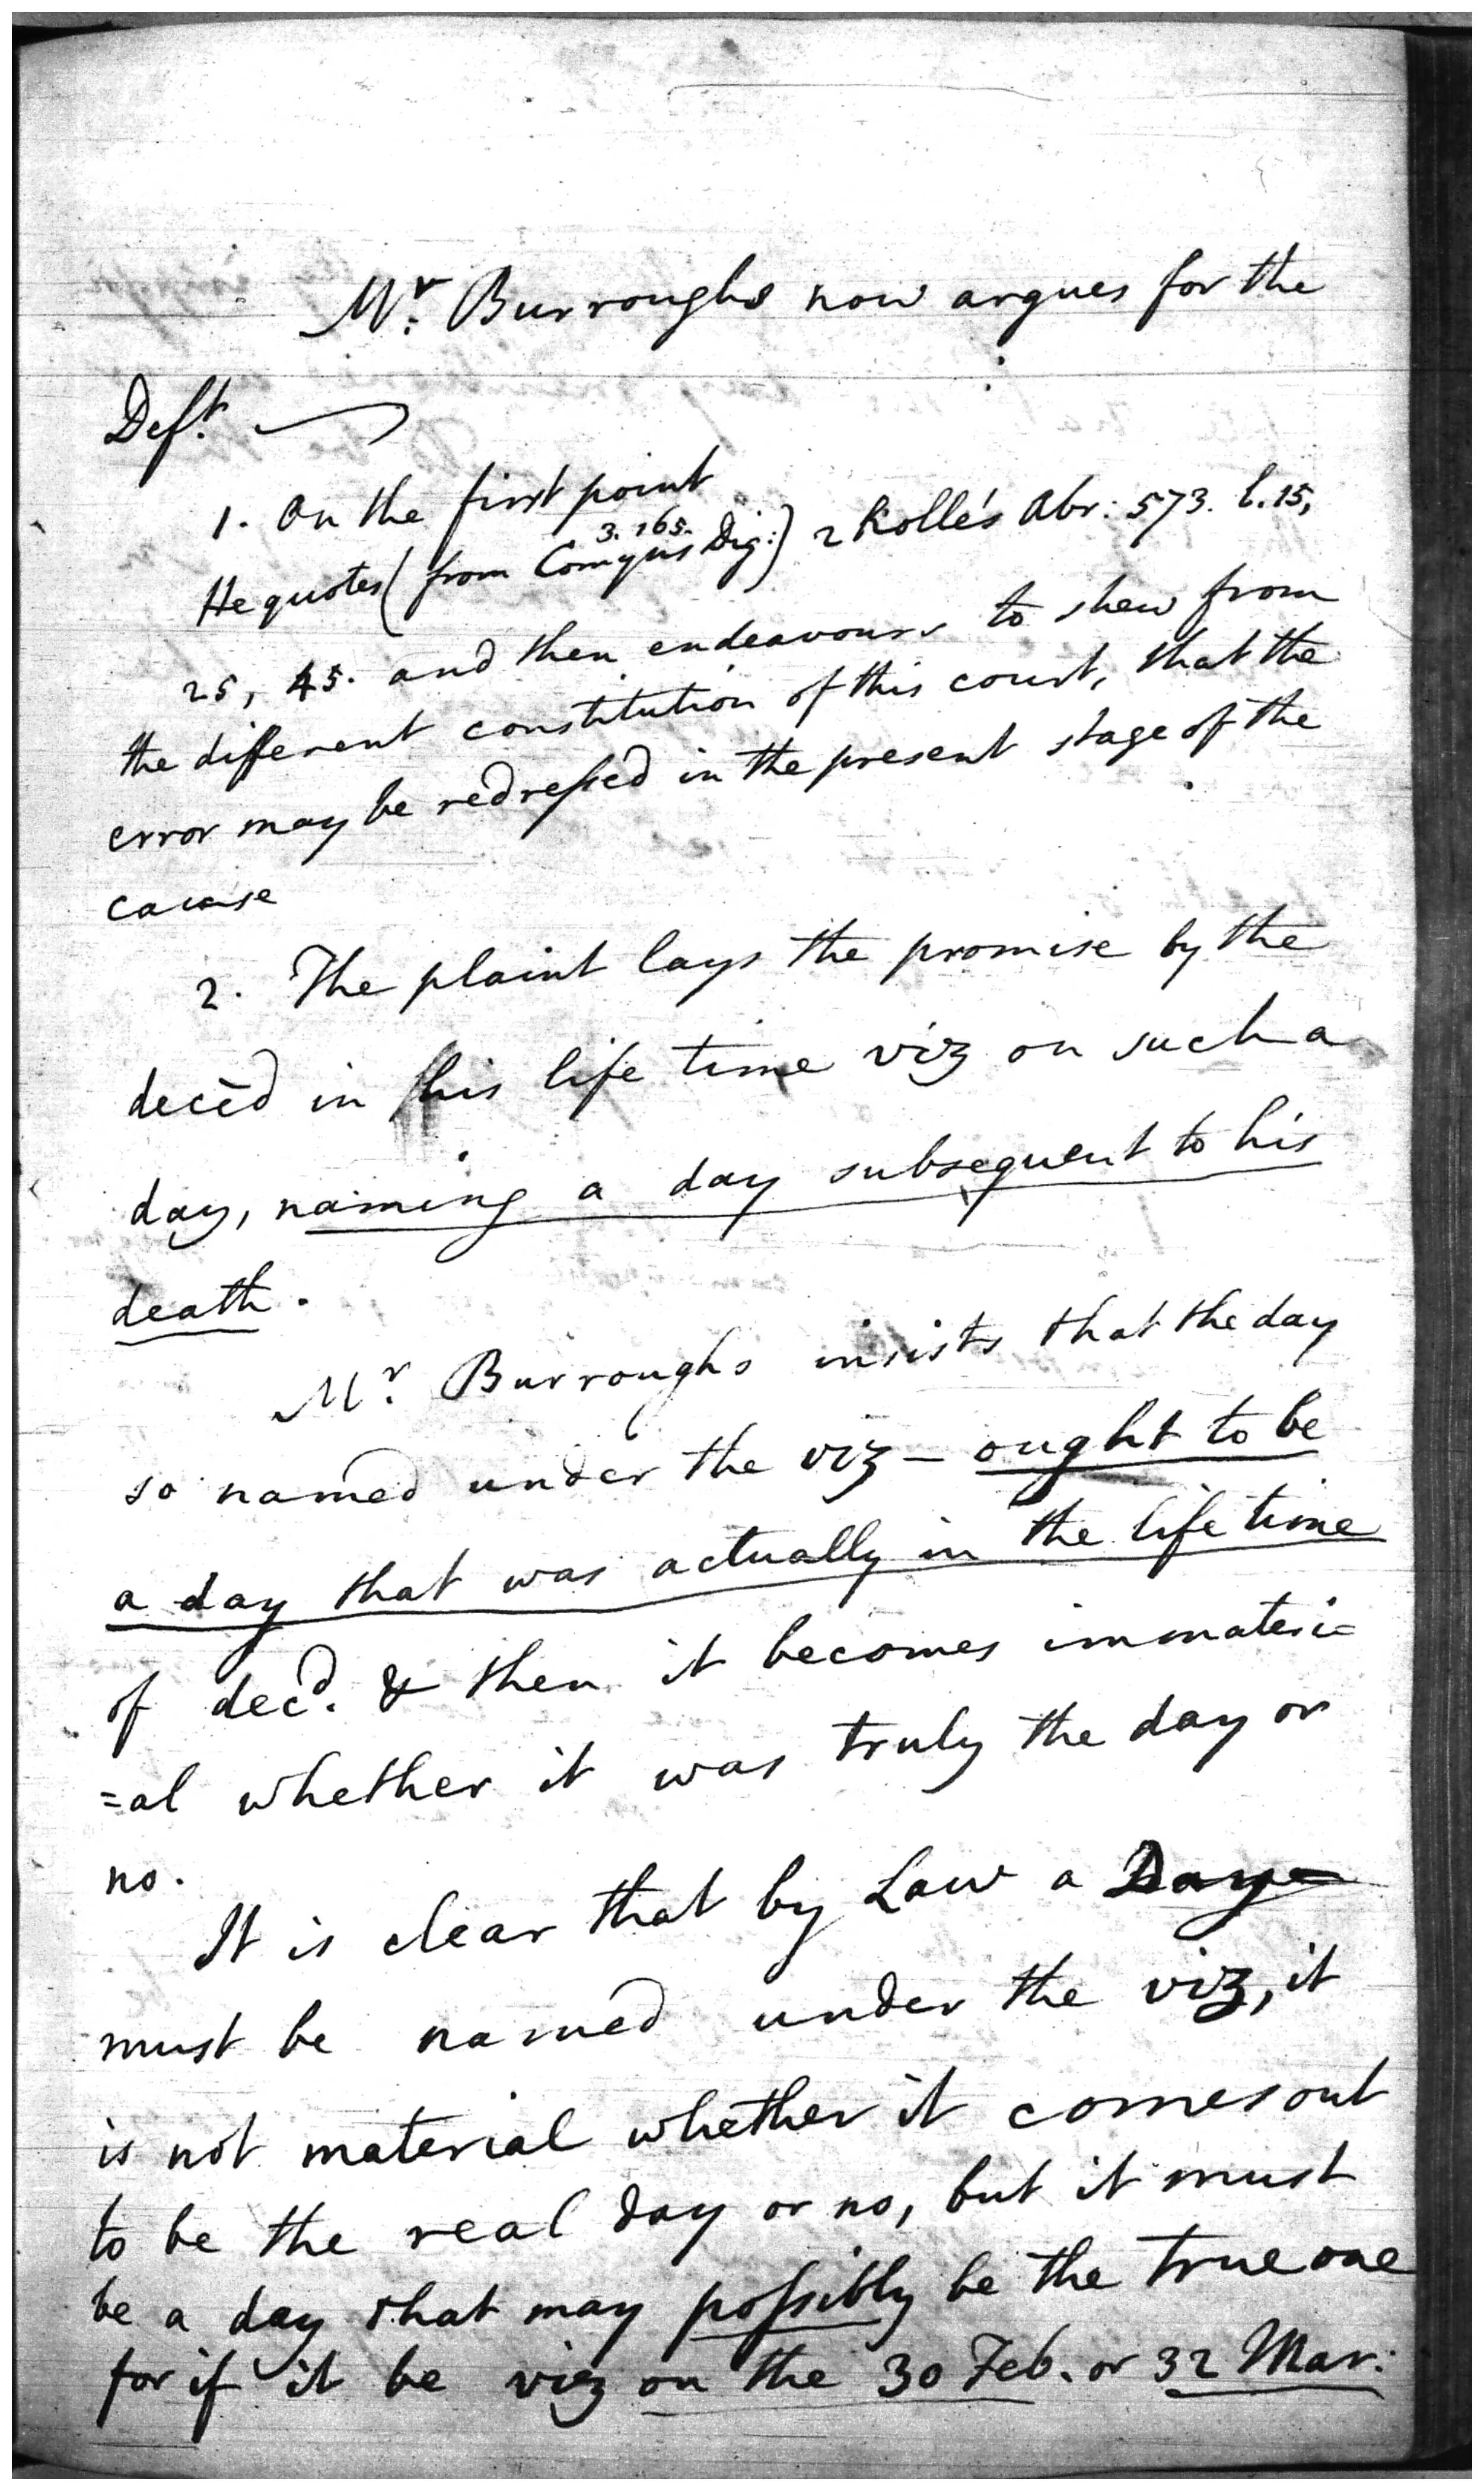 Mr. Burroughs now argues for the
Deft.
1. On the first point
3. 165.
He quotes (from Comyns Dig:) 2 Rolle's Abr: 573. l. 15,
25, 45. and then endeavours to shew from
the different constitution of this court, that the
error may be redressed in the present stage of the
cause
2. The plaint lays the promise by the
deced in his life time viz on such a
day, naming a day subsequent to his
death.
Mr. Burroughs insists that the day
so named under the viz — ought to be
a day that was actually in the life time
of decd. & then it becomes immateri=
=al whether it was truly the day or
no.
It is clear that by Law a Day
must be named under the viz, it
is not material whether it comes out
to be the real day or no, but it must
be a day that may possibly be the true one
for if it be viz on the 30 Feb. or 32 Mar: